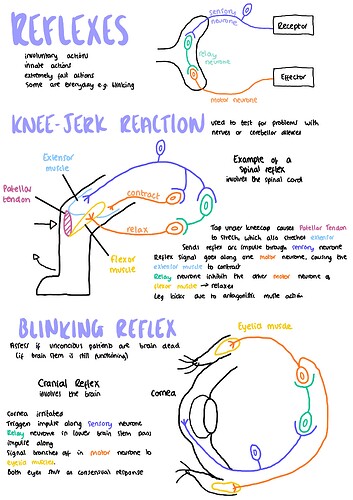 REFLEXES
involuntary actions
innate actions
extremely fast actions
Some are everyday e.g. blinking
sensory
neurone
Receptor
relay
neurone
Effector
motor neurone
KNEE-JERK REACTION
used to test for problems with
nerves or cerebellar
Extensor
muscle
Patellar
tendon
contract
relax
flexor
muscle
Example of a
spinal reflex
involves the spinal cord
Tap under kneecap causes Patellar Tendon
to stretch, which also stretches extensor
Sends reflex arc impulse through sensory neurone
Reflex signal goes along one motor neurone, causing the
extensor muscle to contract
Relay neurone inhibits the other motor neurone of
flexor muscle → relaxes
Leg kicks due to antagonistic muscle action
BLINKING REFLEX
Assess if unconcious patients are brain dead
(if brain stem is still functioning)
Eyelid muscle
Cranial Reflex
involves the brain
Cornea
Cornea irritated
Triggers impulse along sensory neurone
Relay neurone in lower brain stem pass
impulse along
Signal branches off in motor neurone to
eyelid muscles
Both eyes shut as consensual response